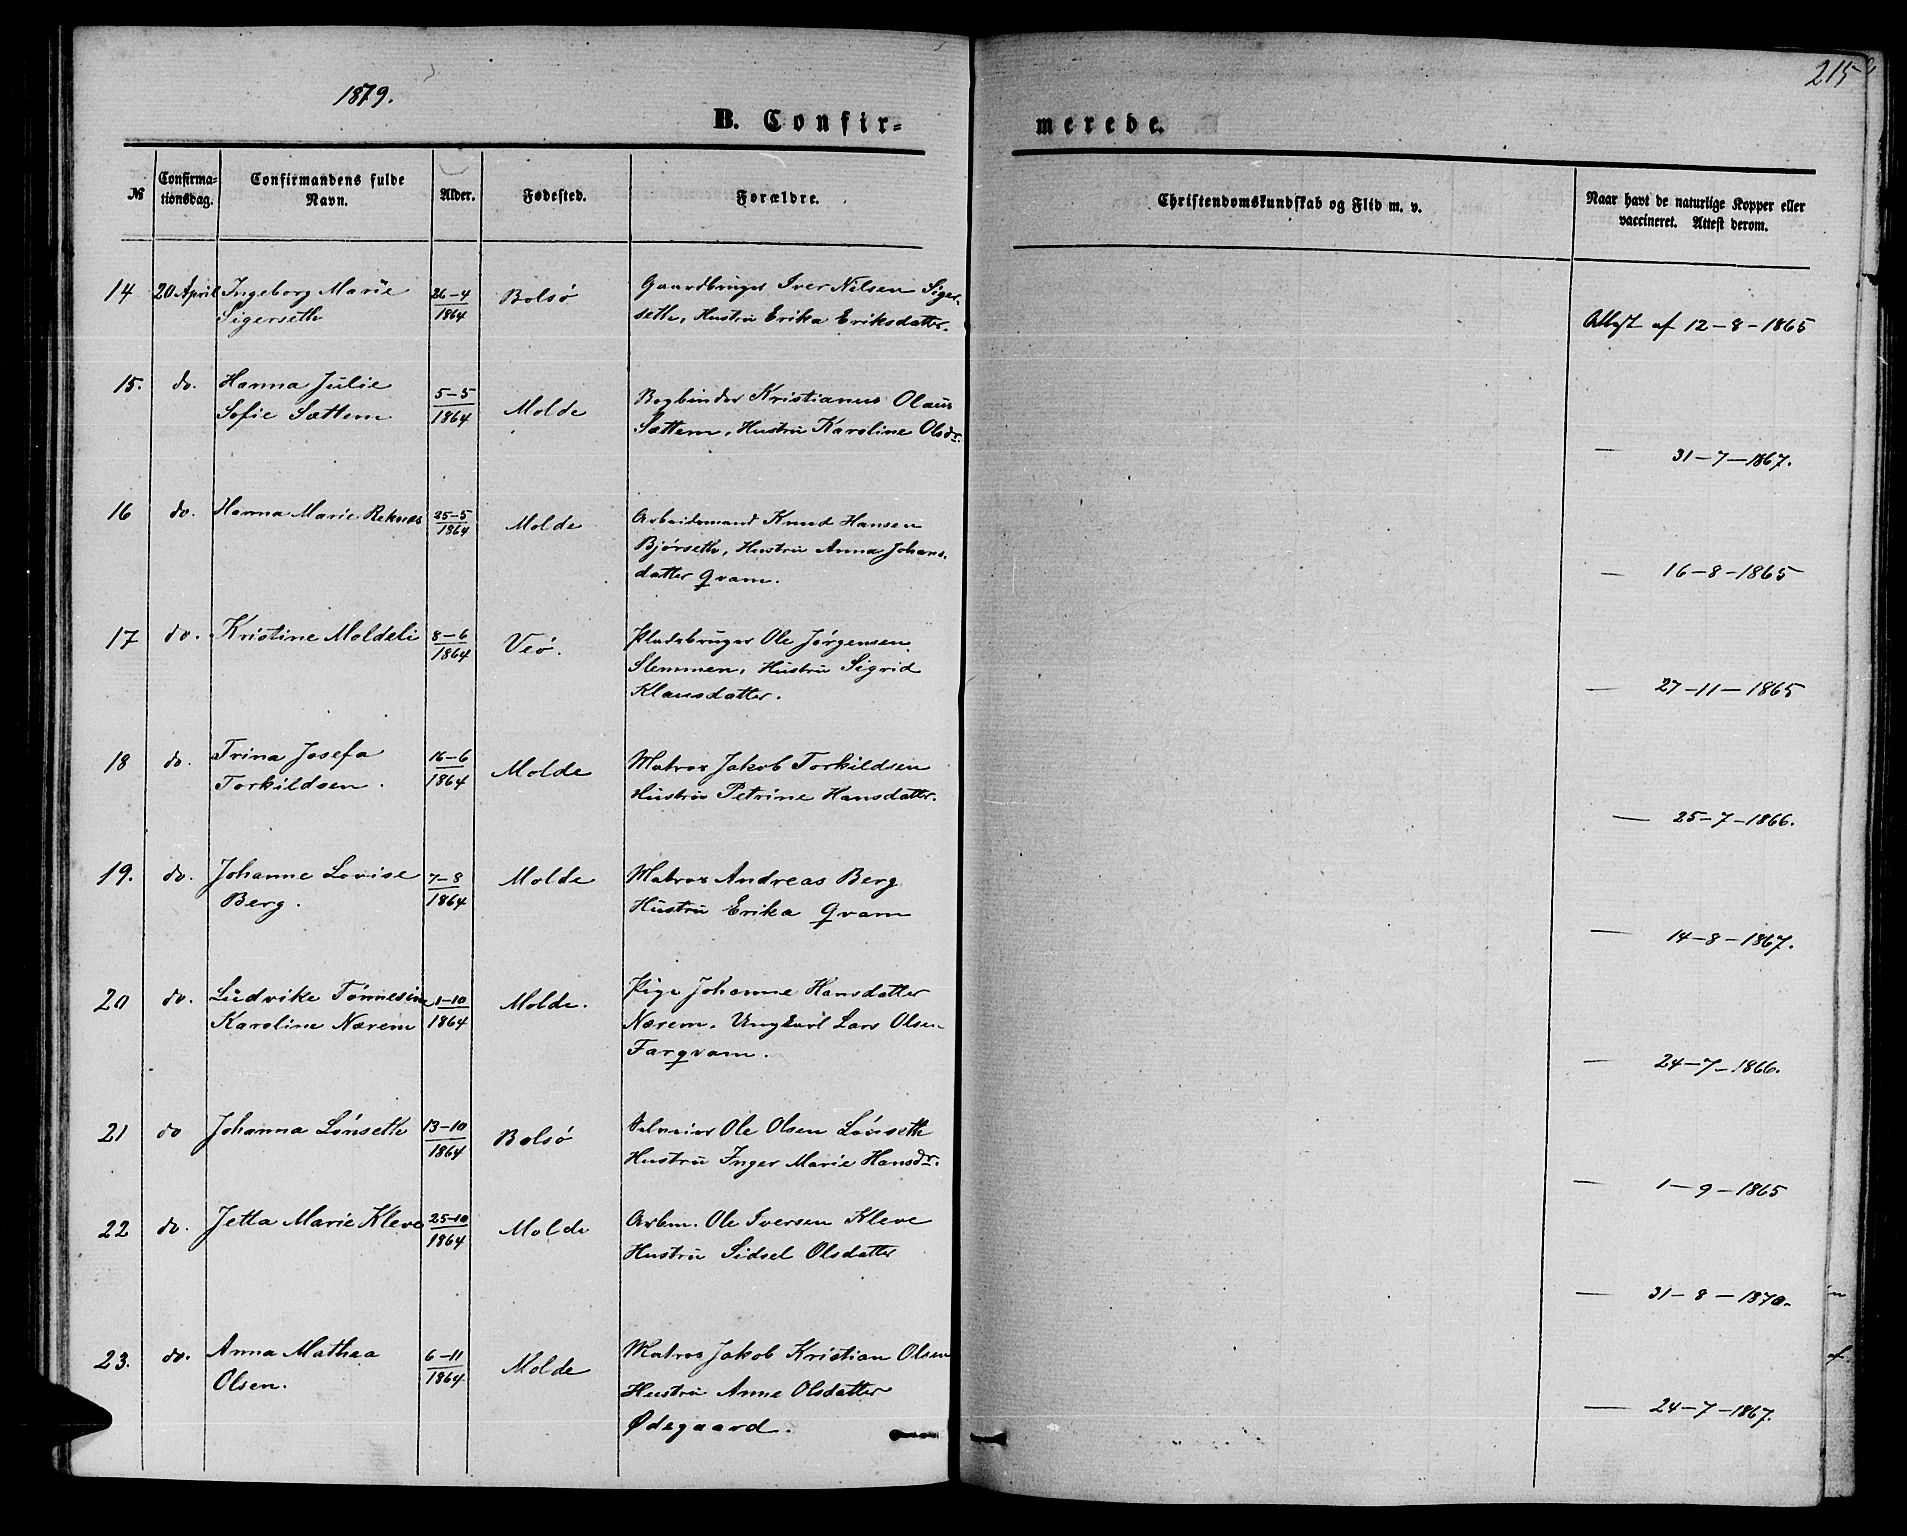 1879.
215
B. Confir-
merede.
№
Confirma-
tionsdag.
Confirmandens fulde
Navn.
Alder.
Fødested.
Forældre.
Christendomskundskab og Flid m. v.
Naar havt de naturlige Kopper eller
vaccineret. Attest derom.
14 20 April Ingeborg Marie 26-4 Bolsø Gaardbruger Iver Nilsen Siger-
Sigerseth 1864 seth, Hustru Erika Eriksdatter.
Attest af 12-8-1865
15. do. Hanna Julie 5-5 Molde Bogbinder Kristianus Olaus
Sofie Sættem 1864 Sættem, Hustru Karoline Olsdr.
— 31-7-1867.
16 do. Hanna Marie Reknes 25-5 Molde Arbeidsmand Knud Hansen
1864 Bjørseth, Hustru Anna Johans-
datter Qvam.
— 16-8-1865
17 do. Kristine Moldeli 8-6 Veø. Pladsbruger Ole Jørgensen
1864 Slemmen, Hustru Sigrid
Klausdatter.
— 27-11-1865
18 do. Trina Josefa 16-6 Molde Matros Jakob Torkildsen
Torkildsen. 1864 Hustru Petrine Hansdatter.
— 25-7-1866.
19. do. Johanne Lovise 7-8 Molde Matros Andreas Berg
Berg. 1864 Hustru Erika Qvam
— 14-8-1867.
20 do. Ludvike Tønnesine 1-10 Molde. Pige Johanne Hansdatter
Karoline Nærem 1864 Nærem. Ungkarl Lars Olsen
Farqvam.
— 24-7-1866.
21 do Johanna Lønseth 13-10 Bolsø Selveier Ole Olsen Lønseth
1864 Hustru Inger Marie Hansdr.
— 1-9-1865
22 do. Jetta Marie Kleve 25-10 Molde Arbm. Ole Iversen Kleve
1864 Hustru Sidsel Olsdatter
— 31-8-1870.
23. do. Anna Mathea 6-11 Molde Matros Jakob Kristian Olsen
Olsen. 1864 Hustru Anne Olsdatter
Ødegaard.
— 24-7-1867.